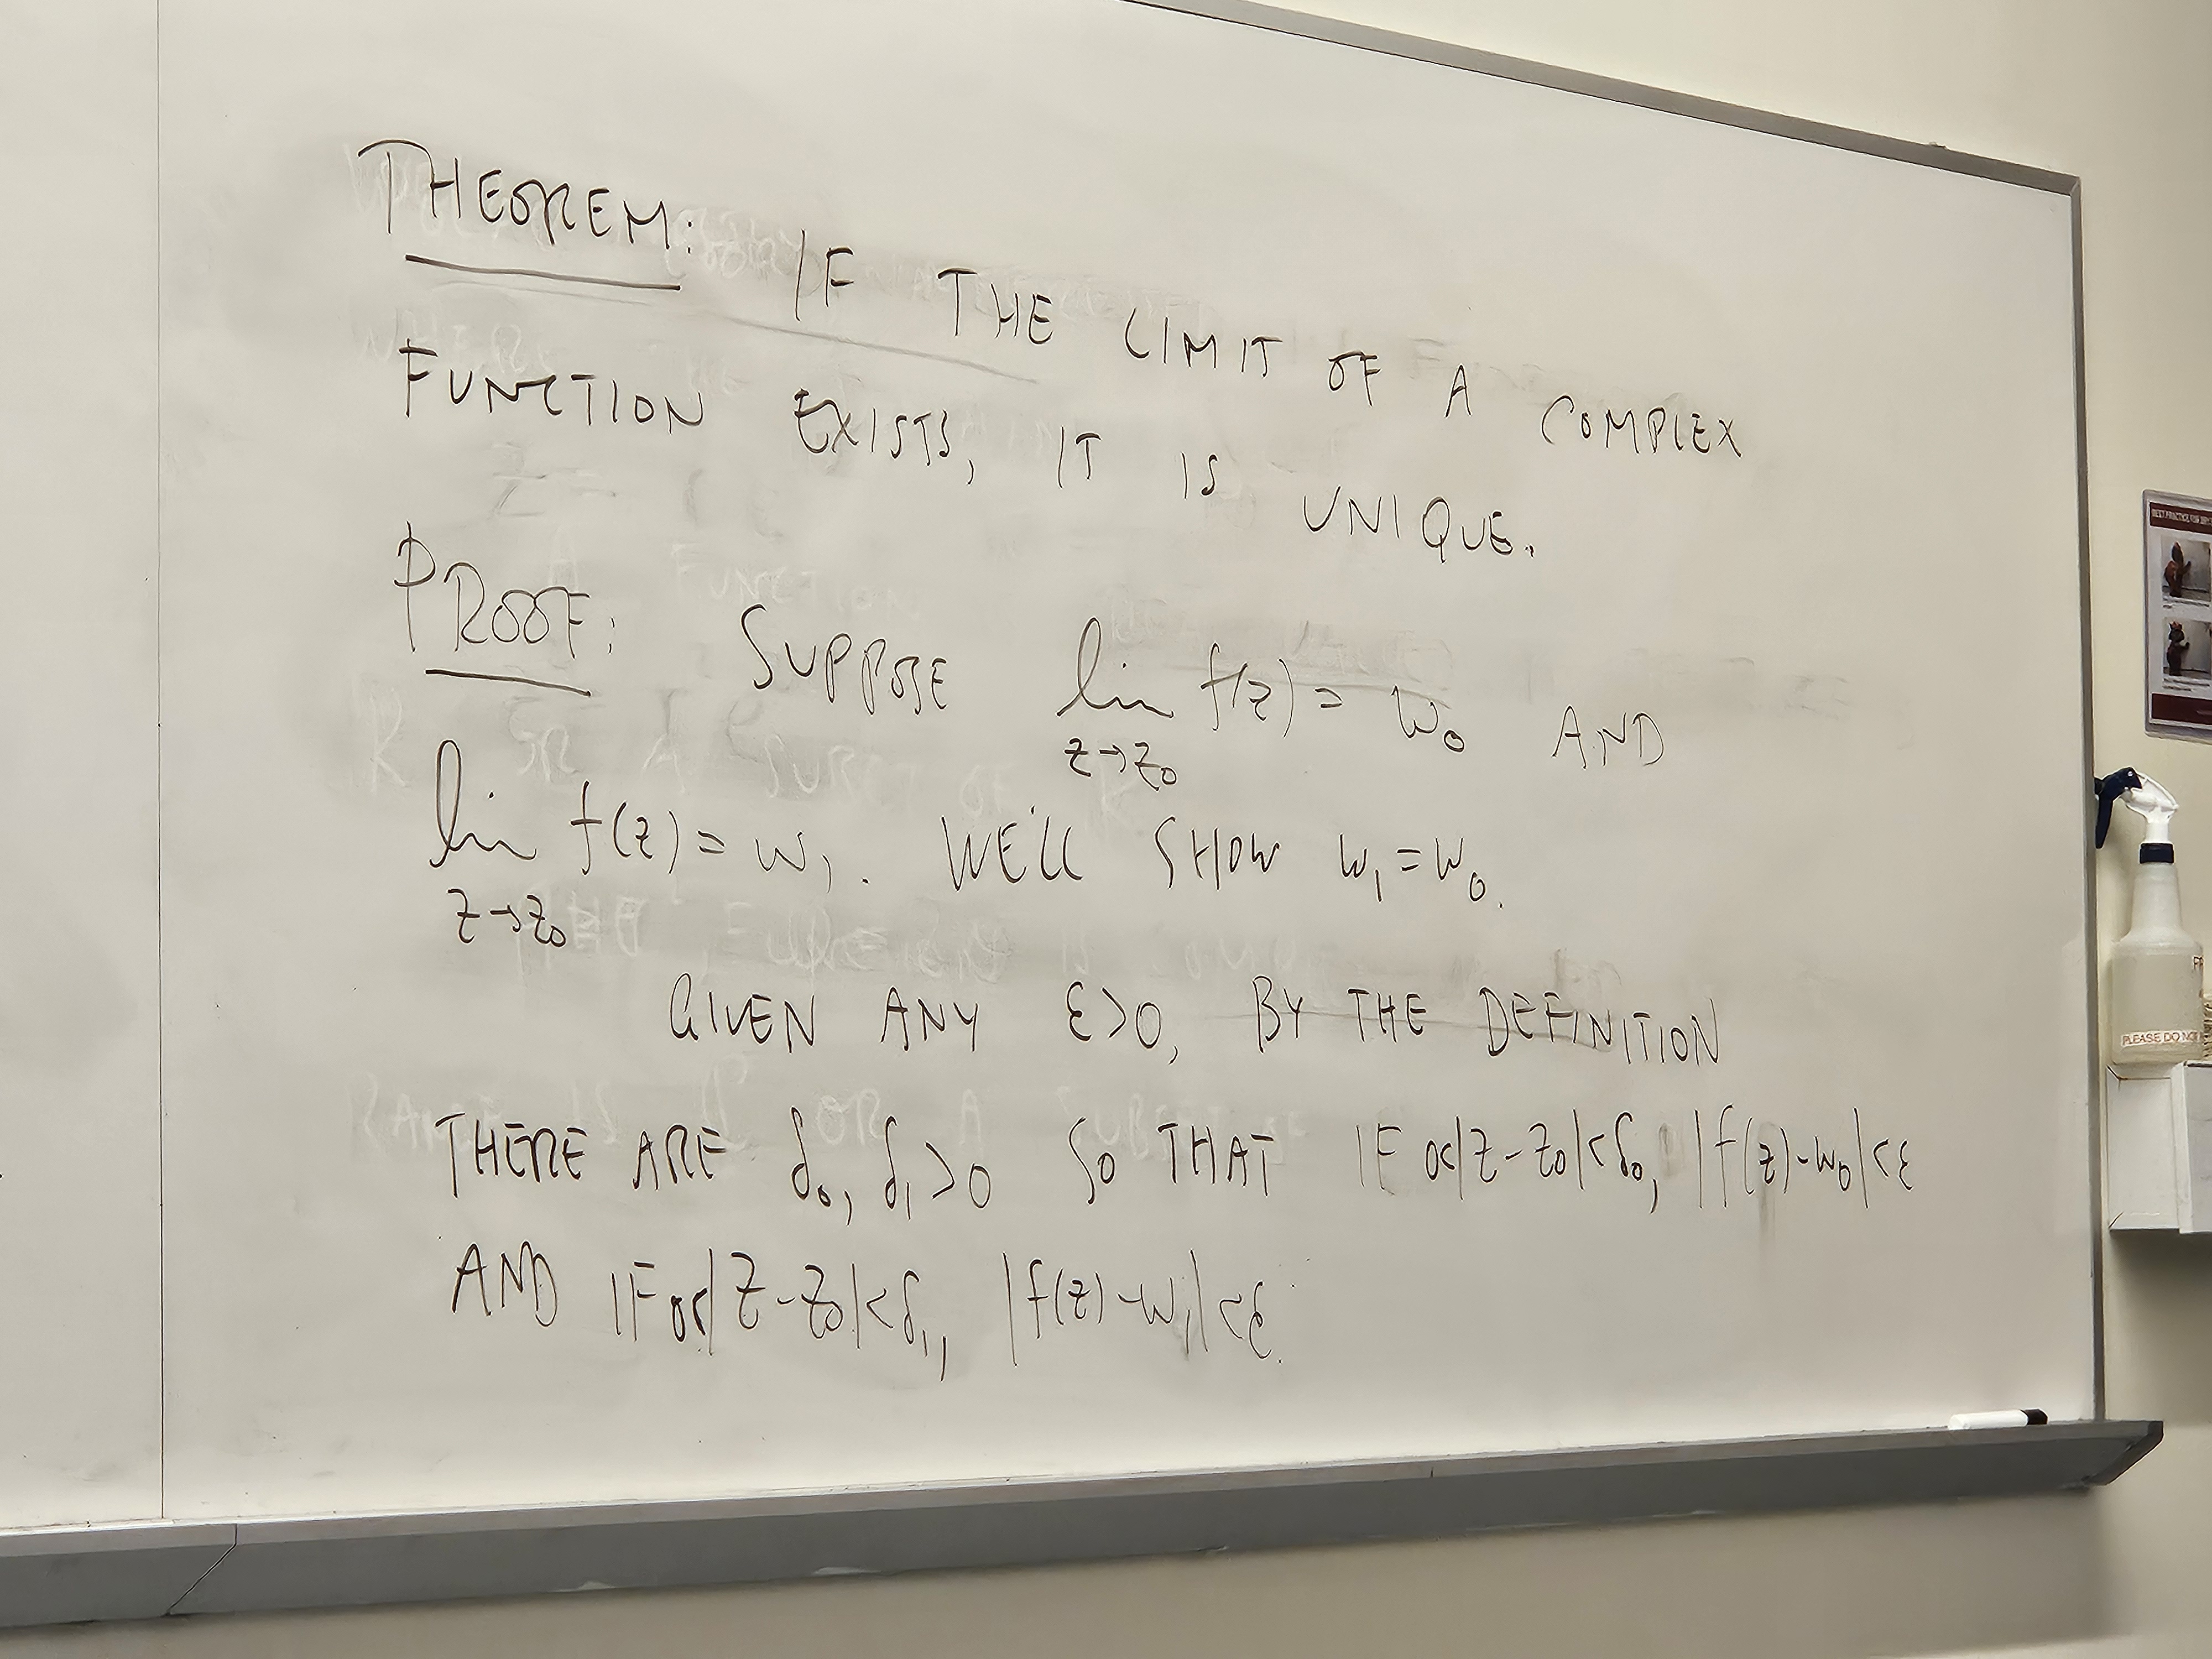 THEOREM: IF THE LIMIT OF A COMPLEX
FUNCTION EXISTS, IT IS UNIQUE.
PROOF: SUPPOSE lim f(z) = w₀ AND
z→z₀
lim f(z) = w₁. WE'LL SHOW w₁ = w₀.
z→z₀
GIVEN ANY ε>0, BY THE DEFINITION
THERE ARE δ₀, δ₁ >0 SO THAT IF 0<|z-z₀|<δ₀, |f(z)-w₀|<ε
AND IF 0<|z-z₀|<δ₁, |f(z)-w₁|<ε.
PLEASE DO NOT